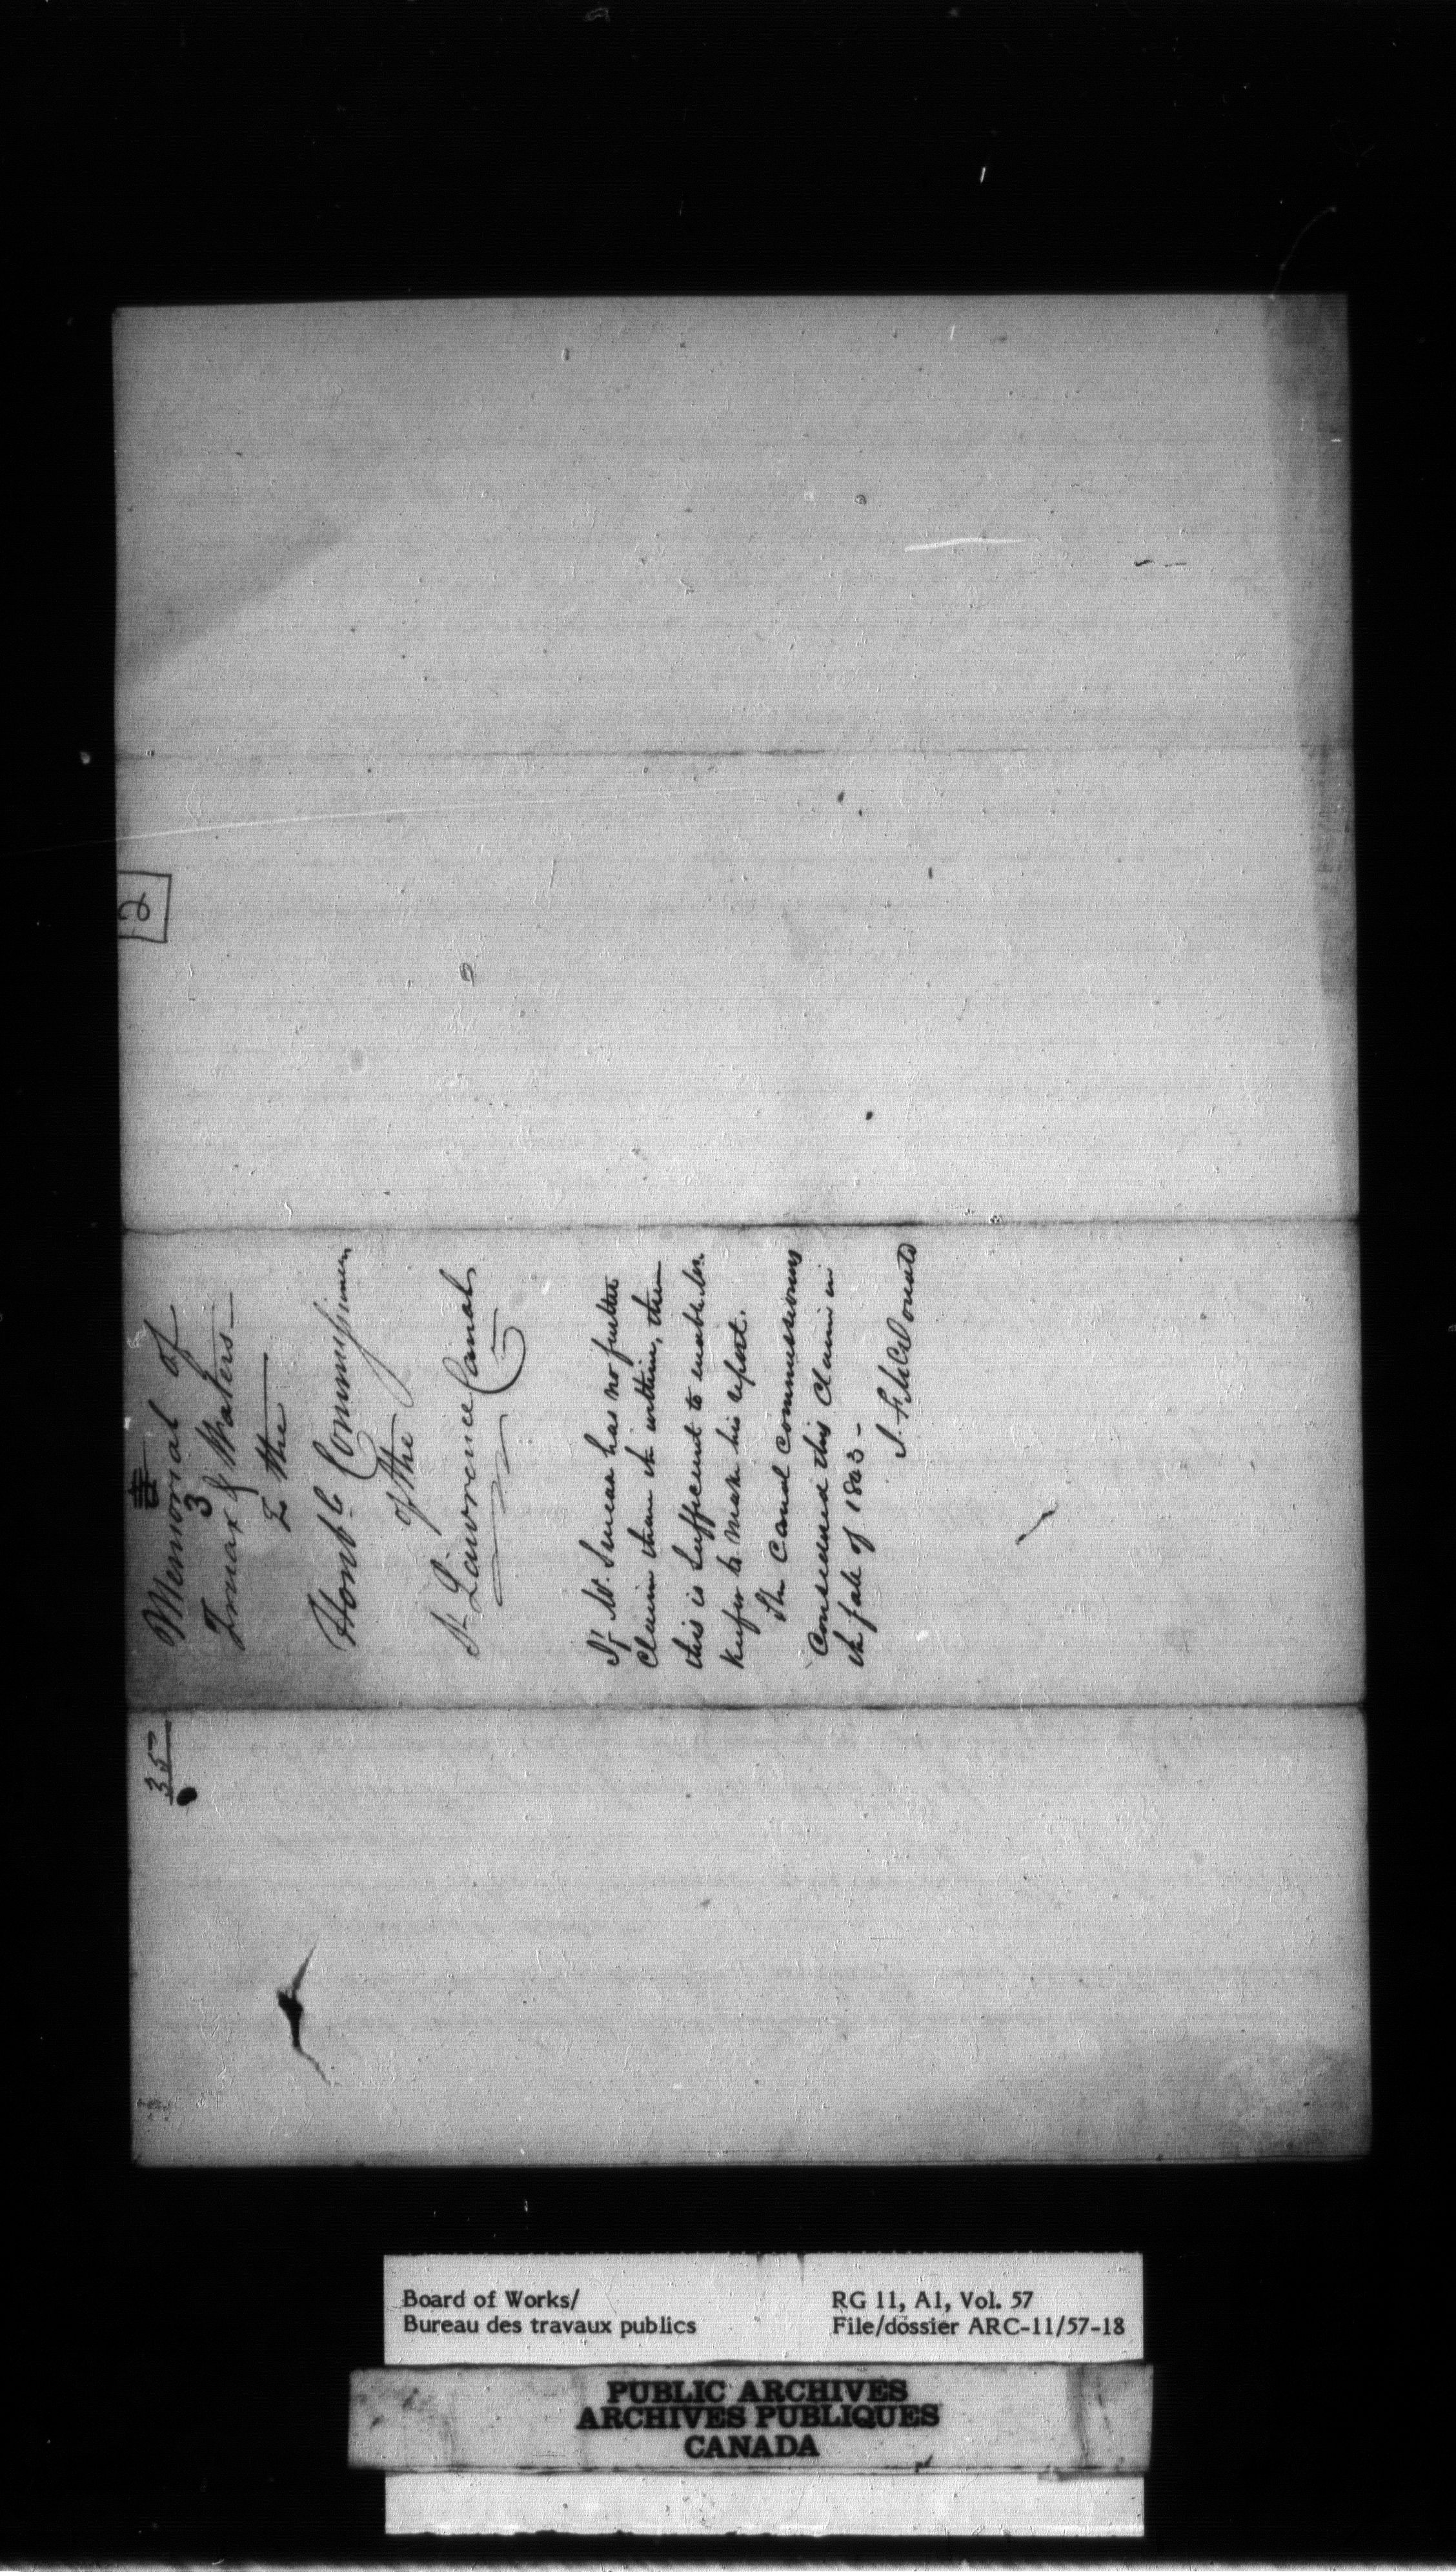 35
Memorial of
3
& Waters
To the
Honble Commissioners
of the
St Lawrence Canals
If Mr. has no further
Claim than the written, then
this is sufficient to enable Mr.
Keefer to make his report.
The Canal Commissioners
Considered this Claim in
the fall of 1843 –
Board of Works/
Bureau des travaux publics
RG 11, A1, Vol. 57
File/dossier ARC-11/57-18
PUBLIC ARCHIVES
ARCHIVES PUBLIQUES
CANADA